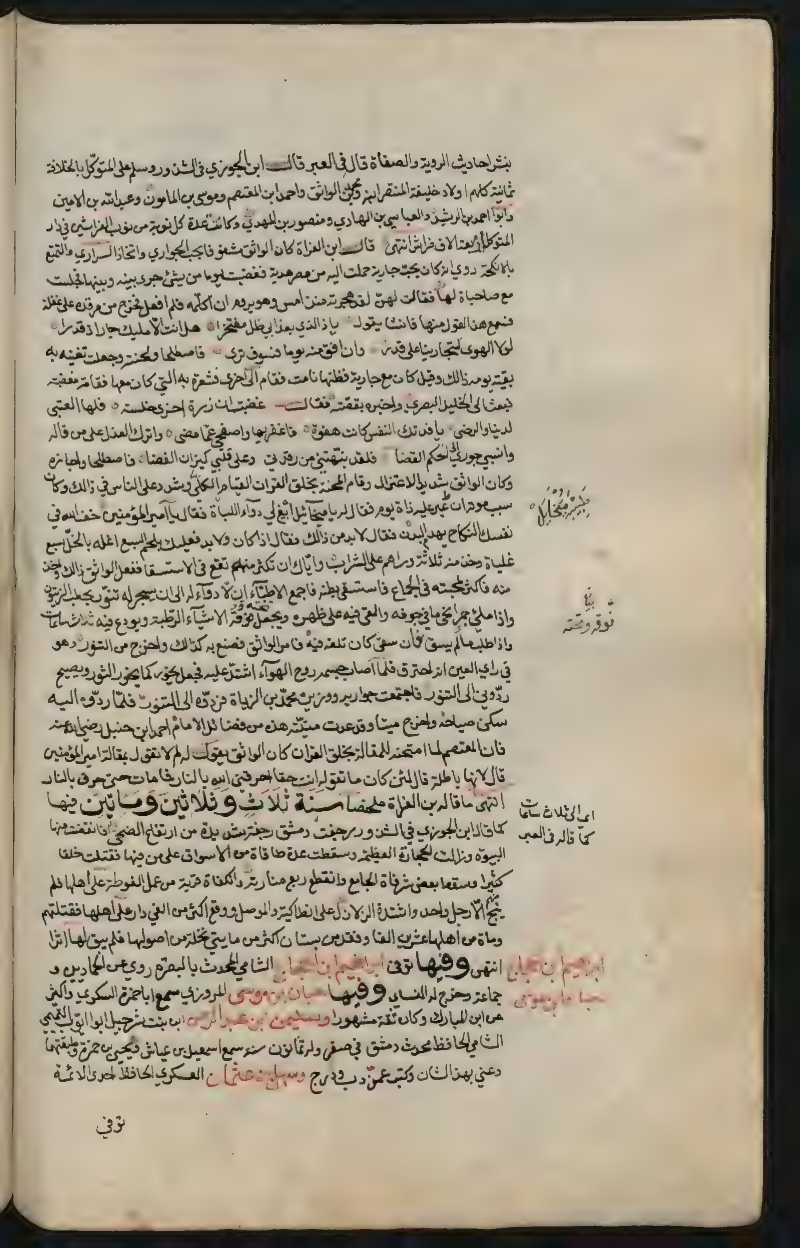 بنشر احاديث الروية والصفاة قال في العبر قال ابن الجوزي في الشذور وسلم على المتوكل بالخلافة
ثمانية كلهم اولاد خليفة المنتصر ابنه ومحمد بن الواثق واحمد ابن المعتصم وموسى بن المامون وعبد الله بن الامين
وابو احمد بن الرشيد والعباس بن الهادي ومنصور بن المهدي وكانت عدة كل نوبة من نوب الفراشين في دار
المتوكل اربعة الاف فراش انتهى قال ابن الفراة كان الواثق شغوفا بحب الجواري واتخاذ السراري والتمتع
بالانكحة روي انه كان يحب جارية حملت اليه من مصر هدية فغضبت يوما من شئ جرى بينه وبينها فجلست
مع صاحباة لها فقالت لهن لقد هجرته منذ امس وهو يروم ان اكلمه فلم افعل فخرج من مرقده على غفلة
فسمع هذا القول منها فانشا يقول يا ذا الذي بعذابي ظل مفتخرا هل انت الا مليك جار اذ قدرا
لولا الهوى لتجارينا على قدر وان افق منه يوما فسوف ترى فاصطلحا ولحنته وجعلت تغنيه به
بقية يومه ذالك وقيل كان مع جارية فظنها نامت فقام الى اخرى فشعرة به التي كان معها فقامة مغضبة
فبعث الى الخليل البصري واخبره بقصته فقال غضبت ان زرة اخرى خلسة فلها العتبى
لدينا والرضى يا فدتك النفس كانت هفوة فاغفريها واصفحي عما مضى واترك العذل على من قاله
وانسبي جوري الى حكم القضا فلقد نبهتني من رقدتي وعلى قلبي كنيران الغضا فاصطلحا واجازه
وكان الواثق شديد الاعتزال وقام المحنة بخلق القران القيام الكلي وشدد على الناس في ذالك وكان
سبب موته ان طبيبه ذاة يوم فقال له يا ميخائيل ابغ لي دواء للباة فقال يا امير المؤمنين خف الله في
نفسك النكاح يهد البدن فقال لا بد من ذالك فقال اذا كان ولا بد فعليك بلحم السبع اغله بالخل سبع
غلياة وخذ منه ثلاثة دراهم على الشراب واياك ان تكثر منه تقع في الاستسقا ففعل الواثق ذالك واخذ
منه فاكثر لمحبته في الجماع فاستسقى بطنه فاجمع الاطباء ان لا دواء له الا ان يسجر له تنور بحطب الزيتون
واذا ملئ جمرا نحي ما في جوفه والقي فيه على ظهره ويجعل فوقه الاشياء الرطبة ويودع فيه ثلاث ساعات
واذا طلب ما لم يسق فان سقي كان تلفه فيه فامر الواثق فصنع به كذالك واخرج من التنور وهو
في راي العين انه احترق فلما اصاب جسمه روح الهوآء اشتد عليه فجعل يخور كما يخور الثور ويصيح
ردوني الى التنور فاجتمعت جواريه ووزيره محمد بن الزياة فردوه الى التنور فلما ردوه اليه
سكن صياحه واخرج ميتا وقد عدت ميتته هذه من فضائل الامام احمد ابن حنبل رضي الله عنه
فان المعتصم لما امتحنه للمقالة بخلق القران كان الواثق يقول له لم لا تقول بقالة امير المؤمنين
قال لانها باطلة قال لئن كان ما تقوله انت حقا احرقني الله بالنار فما مات حتى حرق بالنار
انتهى ما قاله بن الفراة ملخصا سنة ثلاث وثلاثين ومائتين فيها
كما قال ابن الجوزي في الشذور رجفت دمشق رجفة شديدة من ارتفاع الضحى فانتقضت منها
البيوة وزالت الحجارة العظيمة وسقطت عدة طاقاة من الاسواق على من فيها فقتلت خلقا
كثيرا وسقط بعض شرفاة الجامع وانقطع ربع منارته وانكفاة قرية من عمل الغوطة على اهلها فلم
ينج الا رجل واحد واشتدة الزلازل على انطاكية والموصل ووقع اكثر من الفي دار على اهلها فقتلتهم
وماة من اهلها عشرين الفا وفقد من بستان اكثر من مايتي نخلة من اصولها فلم يبق لها اثرا
انتهى وفيها توفي ابراهيم ابن الحجاج الشامي المحدث بالبصرة روى عن الحمادين و
جماعة وخرج له النسايي وفيها حبان بن موسى المروزي سمع ابا حمزة السكري واكثر
عن ابن المبارك وكان ثقة مشهورا وسليمن بن عبد الرحمن ابن بنت شرحبيل ابو ايوب التميمي
الشامي الحافظ محدث دمشق في صفر وله ثمانون سنة سمع اسمعيل بن عياش ويحيى بن حمزة وطبقتهما
وعني بهذا الشان وكتب عمن دب ودرج وسهل بن عثمان العسكري الحافظ احدى الائمة
توفي
طبيبه ميخائيل
بيان
فوقه وتحته
اي الى ثلاث ساعات
كما قاله في العبر
ابراهيم ابن الحجاج
حبان ابن موسى